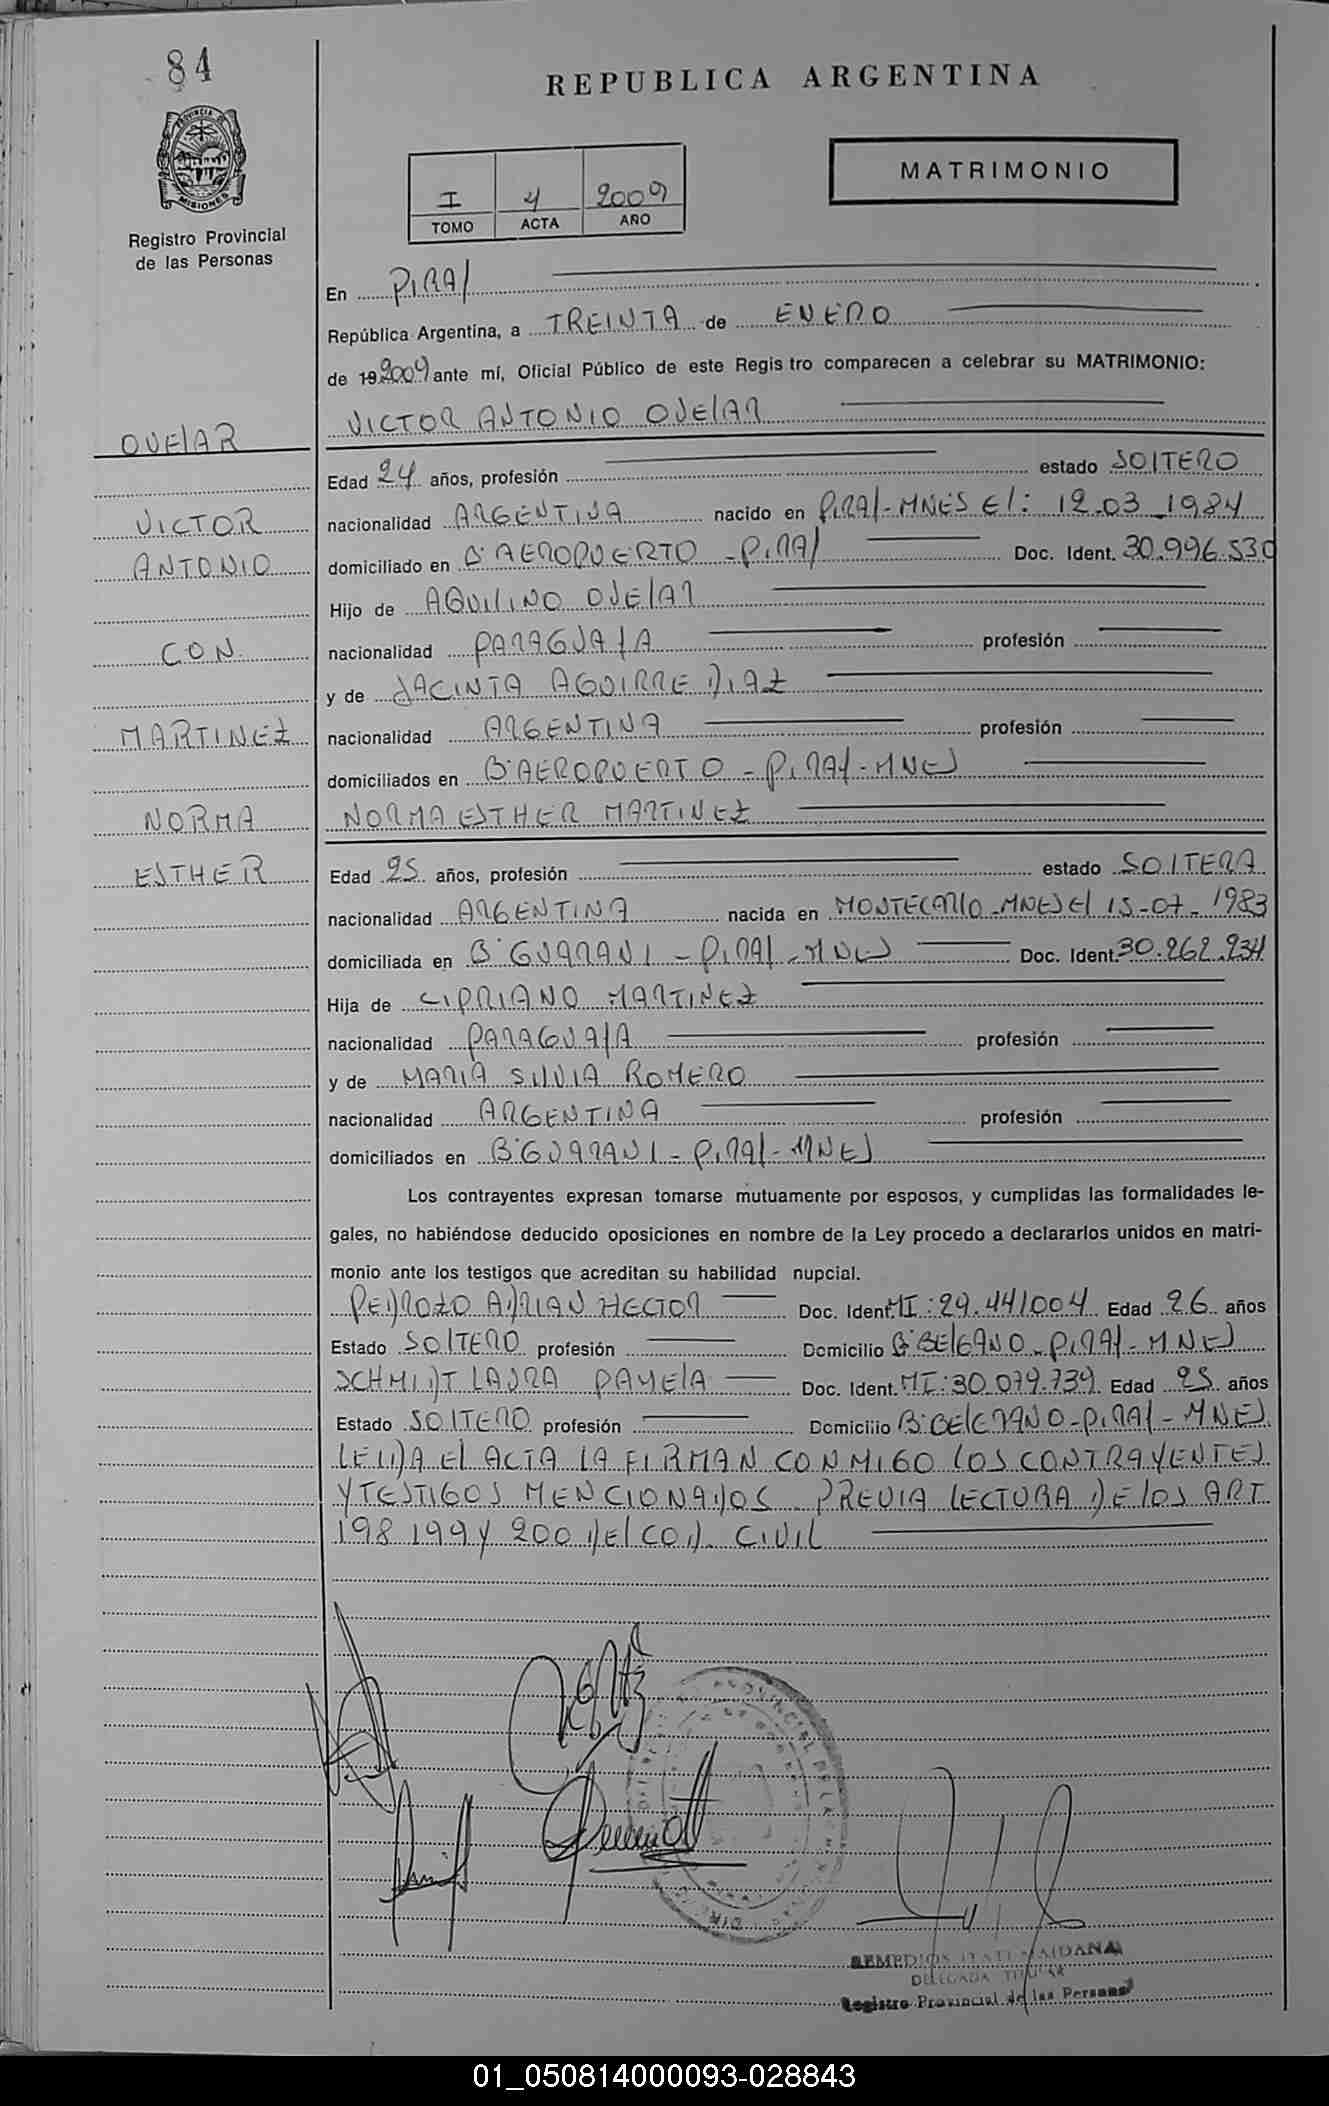 84
REPUBLICA ARGENTINA
PROVINCIA DE
MISIONES
MATRIMONIO
I 4 2009
TOMO ACTA AÑO
Registro Provincial
de las Personas
En PIRAY
República Argentina, a TREINTA de ENERO
de 192009 ante mí, Oficial Público de este Regis tro comparecen a celebrar su MATRIMONIO:
OVELAR
VICTOR ANTONIO OVELAR
Edad 24 años, profesión estado SOLTERO
VICTOR
nacionalidad ARGENTINA nacido en PIRAY-MNES El: 12-03-1984
ANTONIO
domiciliado en Bº AEROPUERTO - PIRAY Doc. Ident. 30.996.530
Hijo de AQUILINO OVELAR
CON
nacionalidad PARAGUAYA profesión
y de JACINTA AGUIRRE DIAZ
MARTINEZ
nacionalidad ARGENTINA profesión
domiciliados en Bº AEROPUERTO - PIRAY - MNES
NORMA
NORMA ESTHER MARTINEZ
ESTHER
Edad 25 años, profesión estado SOLTERA
nacionalidad ARGENTINA nacida en MONTECARLO-MNES El 15-07-1983
domiciliada en Bº GUARANI - PIRAY - MNES Doc. Ident. 30.262.934
Hija de CIPRIANO MARTINEZ
nacionalidad PARAGUAYA profesión
y de MARIA SILVIA ROMERO
nacionalidad ARGENTINA profesión
domiciliados en Bº GUARANI - PIRAY - MNES
Los contrayentes expresan tomarse mutuamente por esposos, y cumplidas las formalidades le-
gales, no habiéndose deducido oposiciones en nombre de la Ley procedo a declararlos unidos en matri-
monio ante los testigos que acreditan su habilidad nupcial.
PEDROZO ADRIAN HECTOR Doc. Ident. MI: 29.441004 Edad 26 años
Estado SOLTERO profesión Domicilio Bº BELGANO - PIRAY - MNES
SCHMIDT LAURA PAMELA Doc. Ident. MI: 30.079.739 Edad 25 años
Estado SOLTERO profesión Domicilio Bº BELGRANO - PIRAY - MNES
LEIDA El ACTA LA FIRMAN CONMIGO LOS CONTRAYENTES
Y TESTIGOS MENCIONADOS PREVIA LECTURA DE LOS ART
198 199 Y 200 DEL COD. CIVIL
REMEDIOS ITATI MAIDANA
DELEGADA TITULAR
Registro Provincial de las Personas
01_050814000093-028843